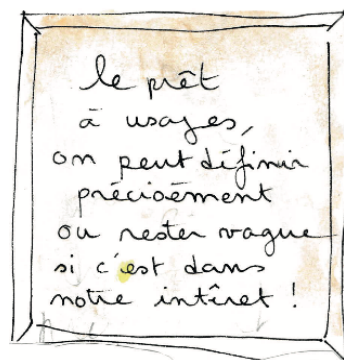 le prêt
à usages,
on peut définir
précisément
ou rester vague
si c'est dans
notre intêret !